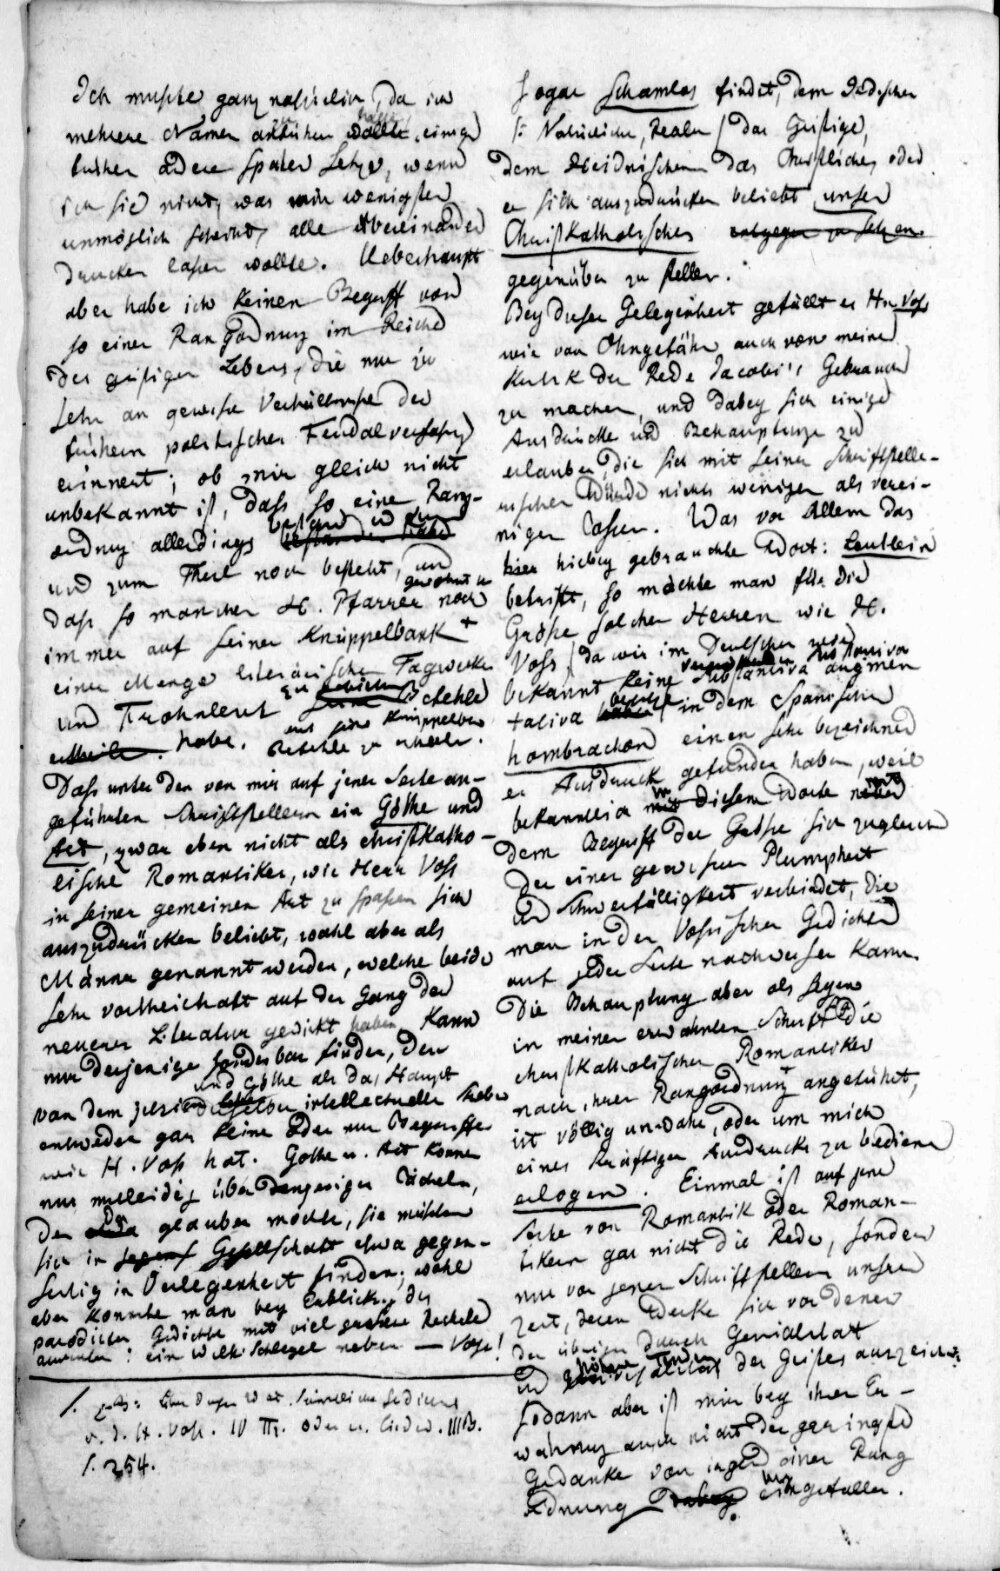 Ich mußte ganz natürlich, da ich
mehrere Namen anführen wollte, einige
früher andere später setzen, wenn
ich sie nicht, was mir wenigstens
unmöglich scheint, alle übereinander
drucken laßen wollte. Ueberhaupt
aber habe ich keinen Begriff von
so einer Rangordnung im Reiche
des geistigen Lebens, die nur zu
sehr an gewisse Verhältnisse der
frühern politischen Feudalverfassung
erinnert; ob mir gleich nicht
unbekannt ist, daß so eine Rang-
ordnung allerdings bestand
und zum Theil noch besteht, und
daß so mancher H. Pfarrer noch gewohnt ist
immer auf seiner Knüppelbank +
einer Menge literärischer Tagwerker
und Fröhnler Befehle
habe. Befehle zu ertheilen.
Daß unter den von mir auf jener Seite an-
geführten Schriftstellern ein Göthe und
Ast, zwar eben nicht als christkatho-
lische Romantiker, wie Herr Voß
in seiner gemeinen Art zu spaßen sich
auszudrücken beliebt, wohl aber als
Männer genannt werden, welche beide
sehr vortheilhaft auf den Gang der
neueren Literatur gewirkt haben kann
nur derjenige sonderbar finden, der
und Göthe als das Haupt
von dem intellectuellen Leben
entweder gar keine oder nur Begriffe
wie H. Voß hat. Göthe u. Ast können
nur mitleidig über denjenigen lächeln,
der da glauben möchte, sie müßten
sich in Gesellschaft etwa gegen-
seitig in Verlegenheit finden; wohl
aber könnte man bey Erblick der
parodirten Gedichte mit viel größerm Rechte
ausrufen: ein Wilh. Schlegel neben — Voß!
v. J. H. Voß. IV Th. Oden u. Lieder. III B.
S. 254.
sogar schamlos findet, dem Irdischen
/: Natürlichen, Realen / das Geistige,
dem Heidnischen das Christliche, oder
er sich auszudrücken beliebt, unser
Christkatholisches entgegen zu setzen.
gegenüber zu stellen.
Bey dieser Gelegenheit gefällt es Hn. Voß
wie von Ohngefähr auch von meiner
Kritik der Rede Jacobi's Gebrauch
zu machen, und dabey sich einige
Ausdrücke und Behauptungen zu
erlauben, die sich mit seiner schriftstelle-
rischen Würde nichts weniger als verei-
nigen laßen. Was vor Allem das
hier hiebey gebrauchte Wort: Leutlein
betrifft, so möchte man für die
Größe solcher Herren wie H.
Voß (da wir im Deutschen
bekannt keine Substantiva augmen
tativa besitzen) in dem Spanischen
hombrachon einen sehr bezeichnenden
Ausdruck gefunden haben, weil
bekanntlich mit diesem Worte
dem Begriff der Größe sich zugleich
der einer gewissen Plumpheit
und Schwerfälligkeit verbindet, die
man in den Voßischen Gedichten
auf jeder Seite nachweisen kann.
Die Behauptung aber als seyen
in meiner erwähnten Schrift die
christkatholischen Romantiker
nach ihrer Rangordnung angeführt,
ist völlig unwahr, oder um mich
eines kräftigen Ausdrucks zu bedienen
erlogen. Einmal ist auf jener
Seite von Romantik oder Roman-
tikern gar nicht die Rede, sondern
nur von jenen Schriftstellern unsrer
Zeit, deren Werke sich vor denen
der übrigen durch Genialität
und des Geistes auszeichnen
sodann aber ist mir bey ihrer Er-
wähnung auch nicht der geringste
Gedanke von irgend einer Rang
ordnung dabey eingefallen.